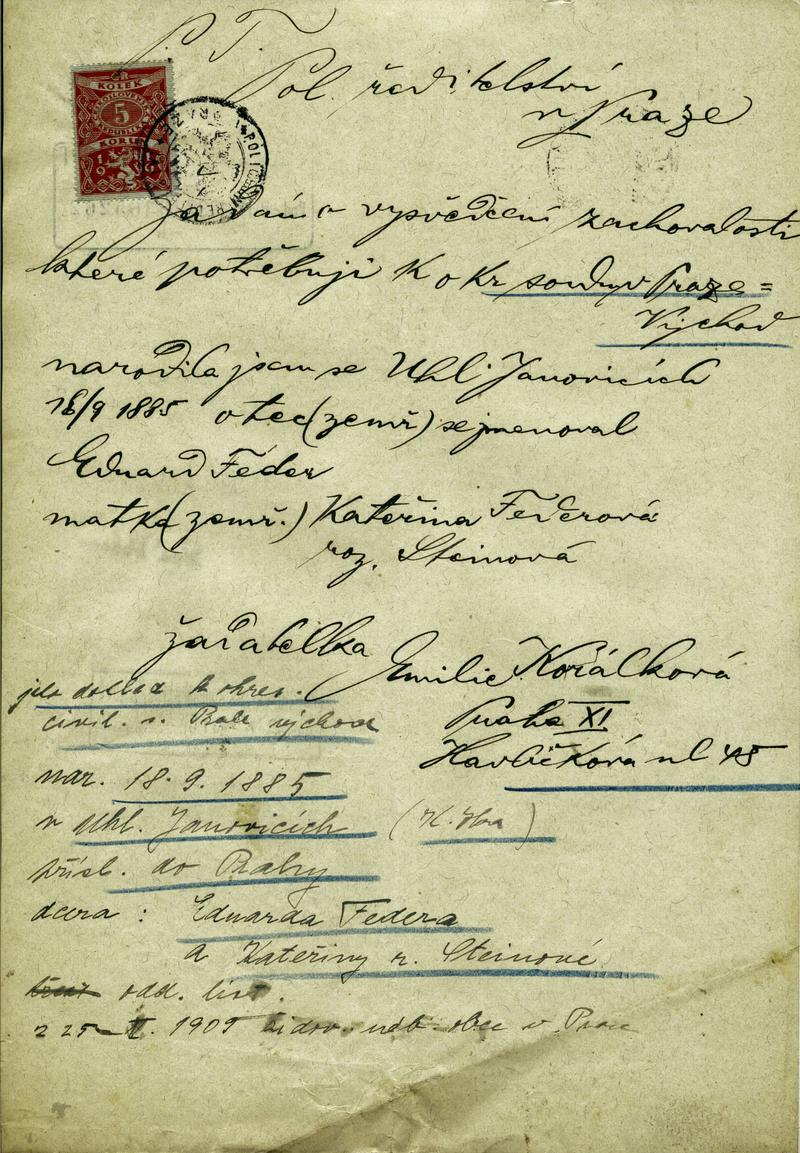 P. T.
Pol. ředitelství
v Praze
KOLEK
5
KORUN
Žádám o vysvědčení zachovalosti
které potřebuji k okr soudu v Praze =
Východ
narodila jsem se Uhl. Janovicích
18/9 1885 otec (zemř) se jmenoval
Eduard Feder
matka (zemř.) Kateřina Federová
roz. Steinová
žadatelka
Emilie Korálková
Praha XI
Havlíčková ul 45
jako doklad k okres.
civil. s. Praha východ
nar. 18. 9. 1885
v Uhl. Janovicích (K. Hora)
přísl. do Prahy
dcera : Eduarda Federa
a Kateřiny r. Steinové
odd. list.
z 25 1909 židov. náb. obce v Praze